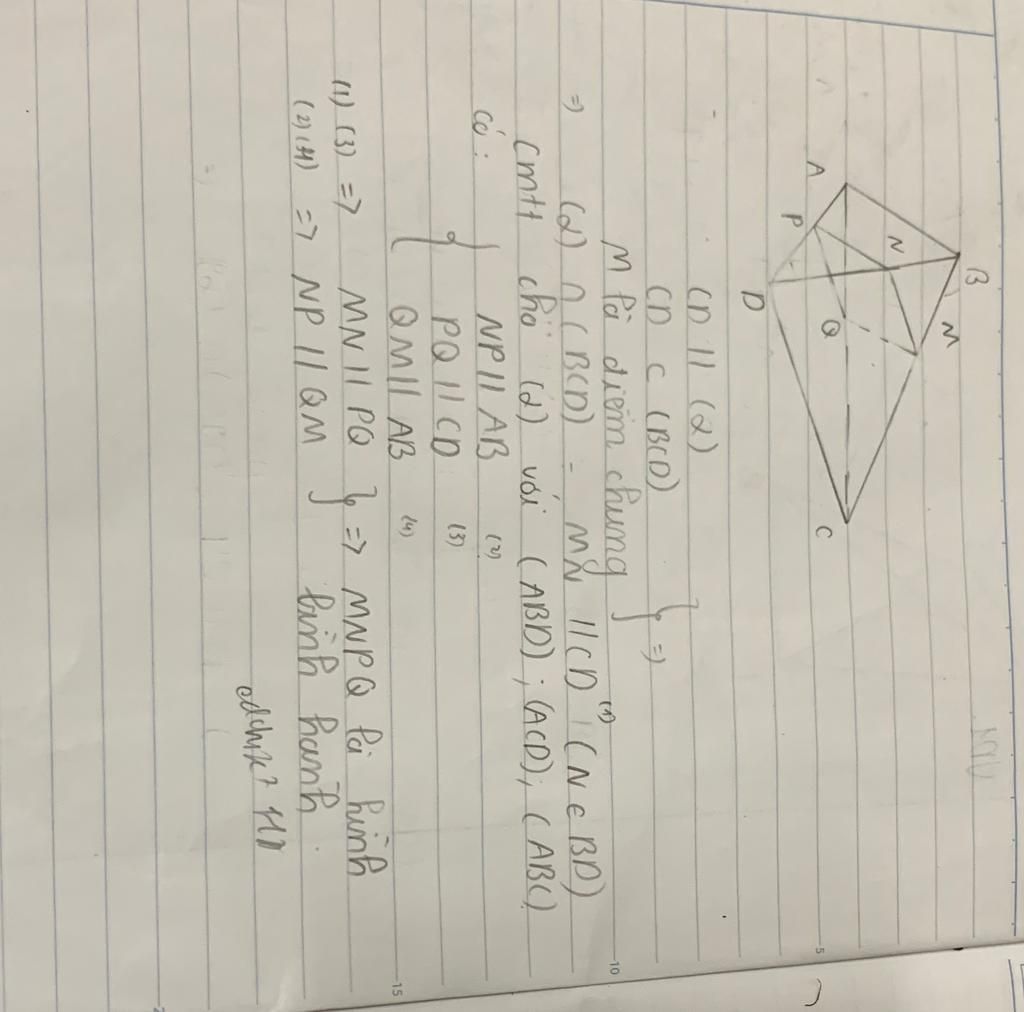 B
A
N
M
P
Q
D
C
CD // (α)
CD ⊂ (BCD)
M là điểm chung } =>
=> (α) ∩ (BCD) = MN // CD (1) (N ∈ BD)
Cmtt cho (α) với (ABD); (ACD); (ABC)
Có: { NP // AB (2)
PQ // CD (3)
QM // AB (4)
(1) (3) => MN // PQ } => MNPQ là hình
(2) (4) => NP // QM bình hành.
5
10
15